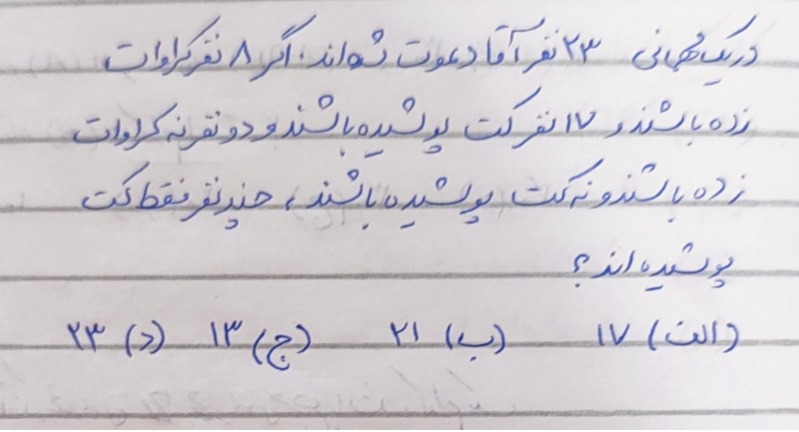 در یک مهمانی ۲۳ نفر آقا دعوت شده‌اند. اگر ۸ نفر کراوات
زده باشند و ۱۷ نفر کت پوشیده باشند و دو نفر نه کراوات
زده باشند و نه کت پوشیده باشند، چند نفر فقط کت
پوشیده اند؟
الف) ۱۷ ب) ۲۱ ج) ۱۳ د) ۲۳